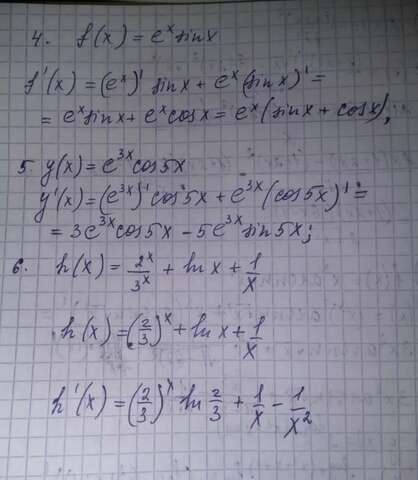 4. f(x) = eˣ sinx
f'(x) = (eˣ)' sinx + eˣ (sinx)' =
= eˣ sinx + eˣ cosx = eˣ (sinx + cosx),
5. y(x) = e³ˣ cos5x
y'(x) = (e³ˣ)' cos5x + e³ˣ (cos5x)' =
= 3e³ˣ cos5x - 5e³ˣ sin5x;
6. h(x) = 2ˣ/3ˣ + ln x + 1/x
h(x) = (2/3)ˣ + ln x + 1/x
h'(x) = (2/3)ˣ ln 2/3 + 1/x - 1/x²